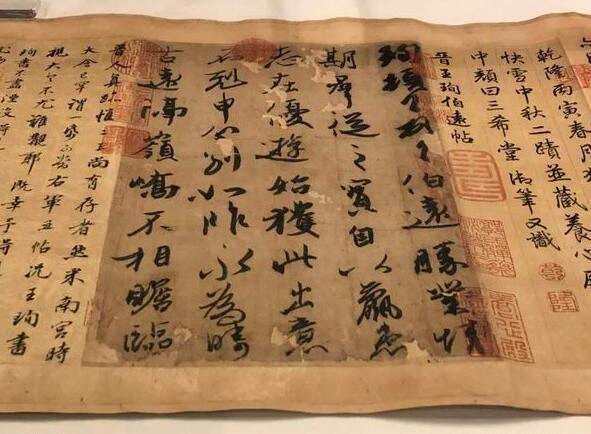 乾隆丙寅春月
快雪中秋二蹟並藏養心殿
中顏曰三希堂御筆又識
晉王珣伯遠帖
珣頓首頓首伯遠勝業情
期群從之寶自以羸患
志在優遊始獲此出意
不剋申分別如昨永為疇
古遠隔嶺嶠不相瞻臨
晉人真跡惟二王尚有存者然米南宮時
大令已罕謂一紙可當右軍五帖況王珣書
視大令不尤難覯耶既幸予得
珣書不盡湮沒